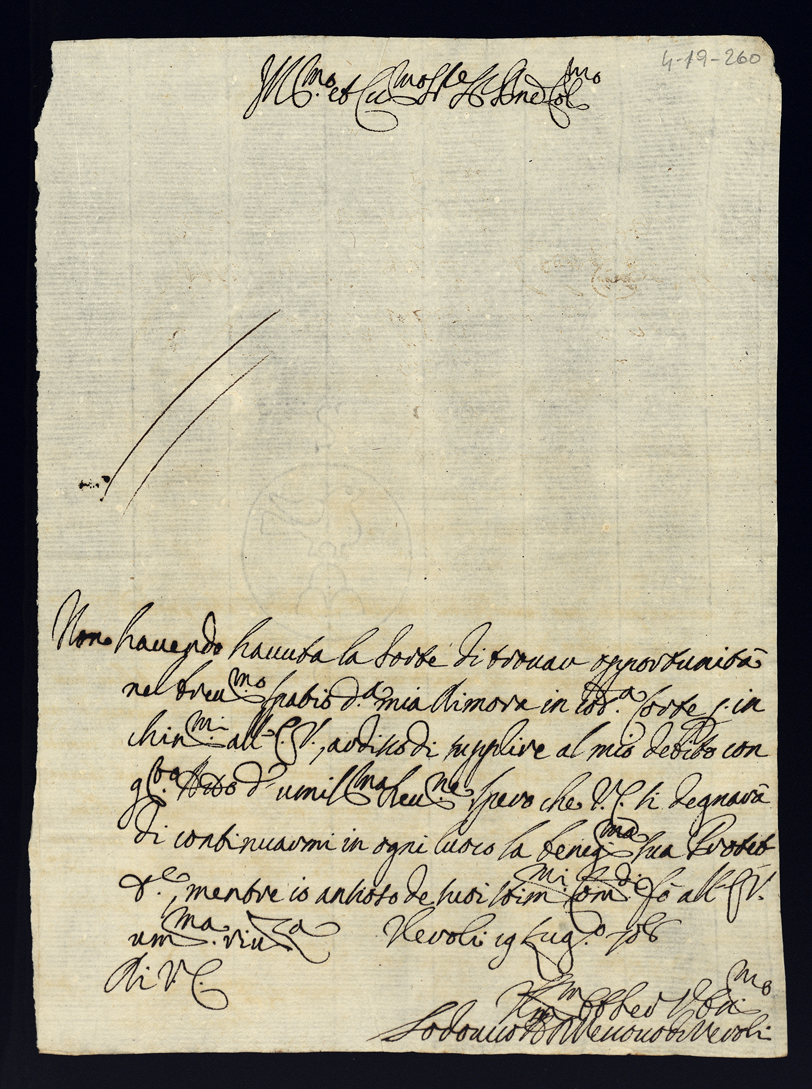 4-19-260
Ill.mo et Ecc.mo Sig.re Sig.re P.ne Col.mo
Non havendo havuta la sorte di trovar opportunità
nel brev.mo spatio d.a mia dimora in cot.a Corte p. in
chin.mi all' E.V., ardisco di supplire al mio debito con
q.to Atto d' umil.ma Rev.ne spero che V.E. si degnarà
di continuarmi in ogni luoco la benig.ma sua Protet
t.e, mentre io ansioso de suoi stim.mi Com.di fò all' E.V.
um.ma riv.za Revoli 19 Lug.o 706
Di V.E.
Um.mo Obb.
Lodovico Vescovo di Revoli